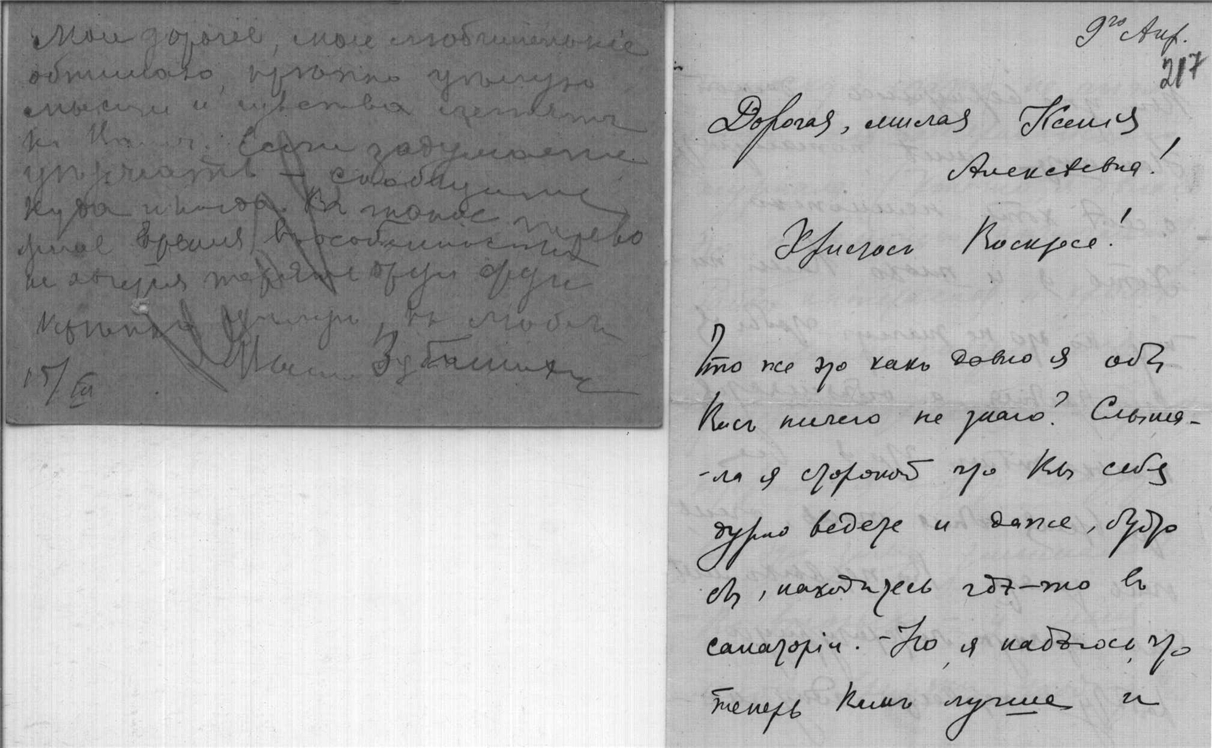 Мои дорогие, мои любименькие
обнимаю крепко целую
мысли и чувства
Если задумаете
уезжать — сообщите
куда и когда. В такое
время в особенности
не терять друг друг
15/III
9го Апр.
217
Дорогая, милая Ксенія
Алексѣевна!
Христосъ Воскресе!
Что же это какъ давно я объ
Васъ ничего не знаю? Слыша-
-ла я стороной что Вы себя
дурно ведете и даже будто
бы, находитесь гдѣ-то въ
санаторіи. - Но я надѣюсь, что
теперь Вамъ лучше и